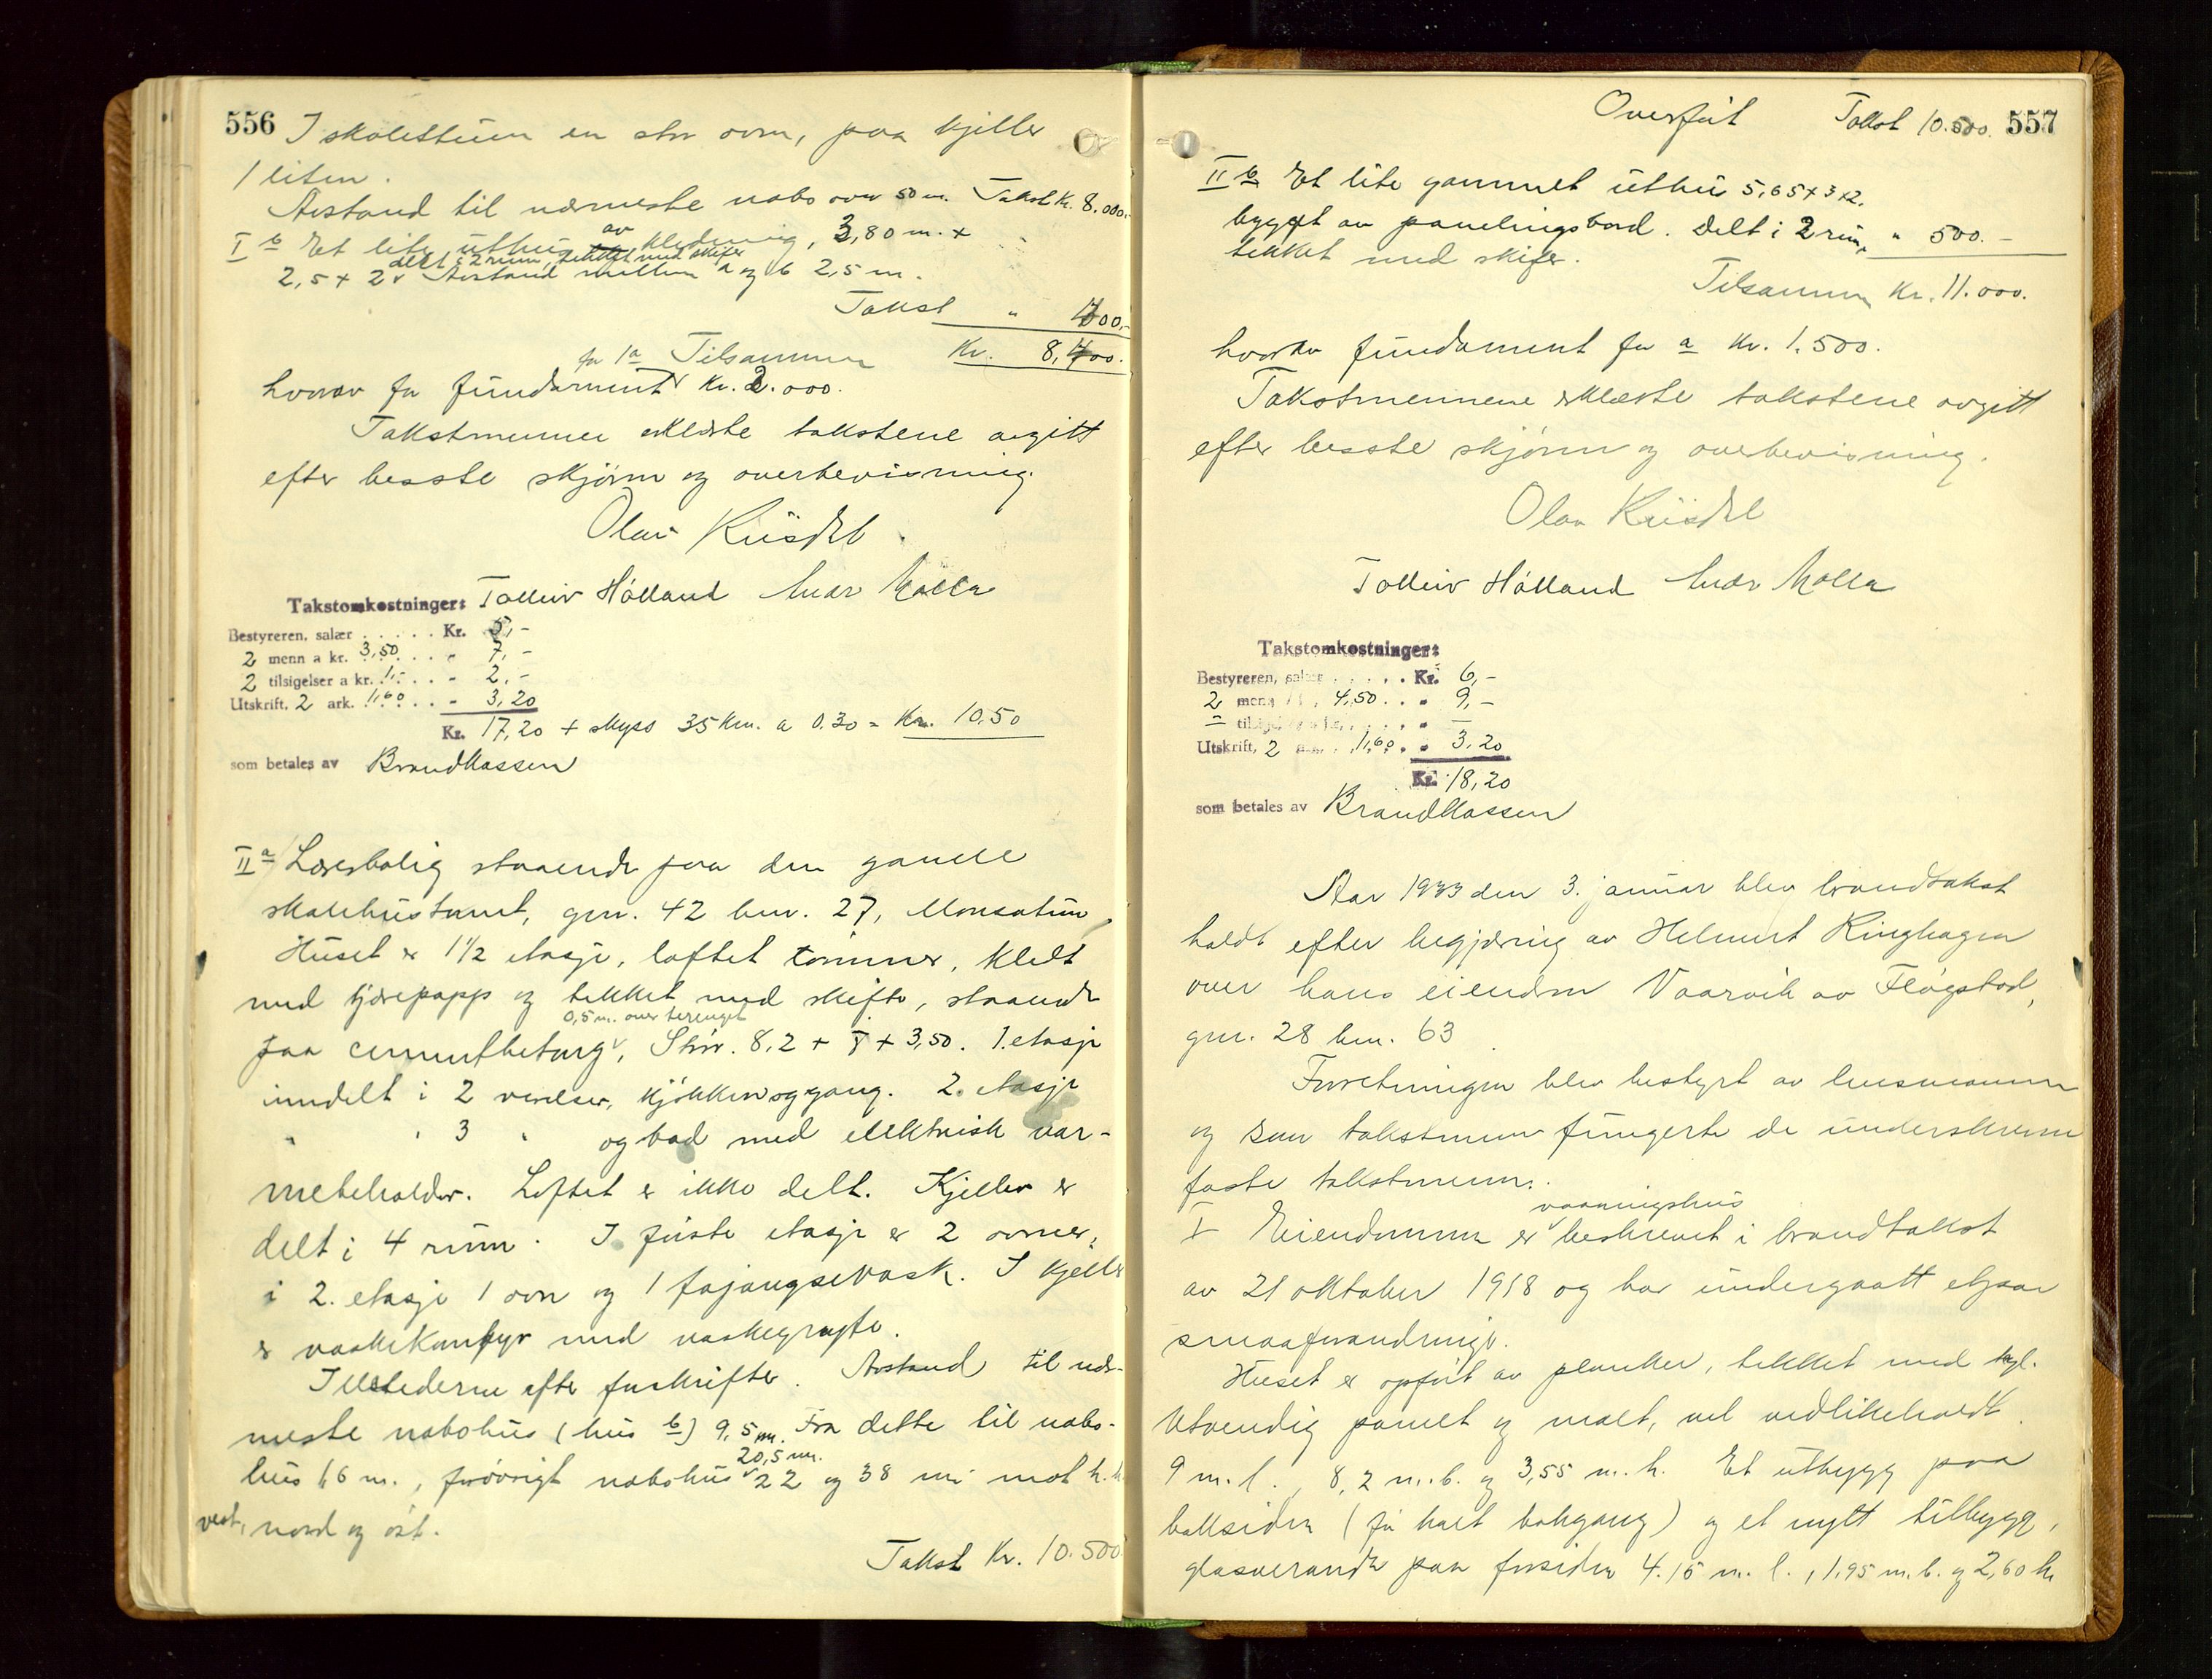 556
I skolestuen en stor ovn, paa kjeller
1 liten.
Avstand til nærmeste nabo over 50 m. Takst Kr. 8.000.-
I b Et lite uthus av kledning, 3,80 m. +
delt i 2 rum, tekket med skifer
2,5 + 2 Avstand mellem a og b 2,5 m.
Takst " 400,-
for 1a Tilsammen Kr. 8,400.
hvorav for fundament Kr. 2.000.
Takstmennene erklærte takstene avgitt
efter besste skjønn og overbevisning.
Olav
Tolleiv Hålland Andr Malla
Takstomkostninger:
Bestyreren, salær . . . . . Kr. 5,-
2 menn a kr. 3,50 . . . " 7,-
2 tilsigelser a kr. 1,- . . " 2,-
Utskrift, 2 ark. 1,60 . . " 3,20
Kr. 17,20 + skyss 35 km. a 0.30 = Kr. 10,50
som betales av Brandkassen
II a Lærerbolig staaende paa den gamle
skolehustomt, gnr. 42 bnr. 27,
Huset er 1 1/2 etasje, loftet tømmer, kledt
med tjærepapp og tekket med skifer, staaende
0,5 m. over terenget
paa cementbetong, Størr. 8,2 + 8 + 3,50. 1. etasje
inndelt i 2 værelser, kjøkken og gang. 2. etasje
" " 3 " og bad med elektrisk var-
mebeholder. Loftet er ikke delt. Kjeller er
delt i 4 rum. I første etasje er 2 ovner,
i 2. etasje 1 ovn og 1 fajangsevask. I kjeller
er vaskekomfyr med vaskegryte.
Ildstederne efter forskrifter. Avstand til nær-
meste nabohus (hus b) 9,5 m. Fra dette til nabo-
20,5 m.
hus 16 m., forøvrigt nabohus 22 og 38 m mot
vest, nord og øst.
Takst Kr. 10.500
Overført Takst 10.500. 557
II b Et lite gammelt uthus 5,65+3+2.
bygget av panelingsbord. Delt i 2 rum, " 500.-
tekket med skifer.
Tilsammen Kr. 11.000.
hvorav fundament for a Kr. 1.500.
Takstmennene erklærte takstene avgitt
efter besste skjønn og overbevisning.
Olav
Tolleiv Hålland Andr Malla
Takstomkostninger:
Bestyreren, salær . . . . . Kr. 6,-
2 menn 4,50 . . " 9,-
- " -
Utskrift, 2 1,60 . . " 3,20
Kr. 18,20
som betales av Brandkassen
Aar 1933 den 3. januar blev brandtakst
holdt efter begjæring av Helmert Ringhagen
over hans eiendom Vaarvik av Fløgstad,
gnr. 28 bnr. 63
Forretningen blev bestyrt av lensmannen
og som takstmenn fungerte de underskrevne
faste takstmenn.
vaaningshus
I Eiendommen er beskrevet i brandtakst
av 21 oktober 1918 og har undergaatt
smaaforandringer.
Huset er opført av planker, tekket med tegl.
Utvendig panelt og malt, vel vedlikeholdt.
9 m. l. 8,2 m. b. og 3,55 m. h. Et utbygg paa
baksiden (før kalt bakgang) og et nytt tilbygg,
glasveranda paa forsiden 4.15 m. l., 1,95 m. b. og 2,60 h.